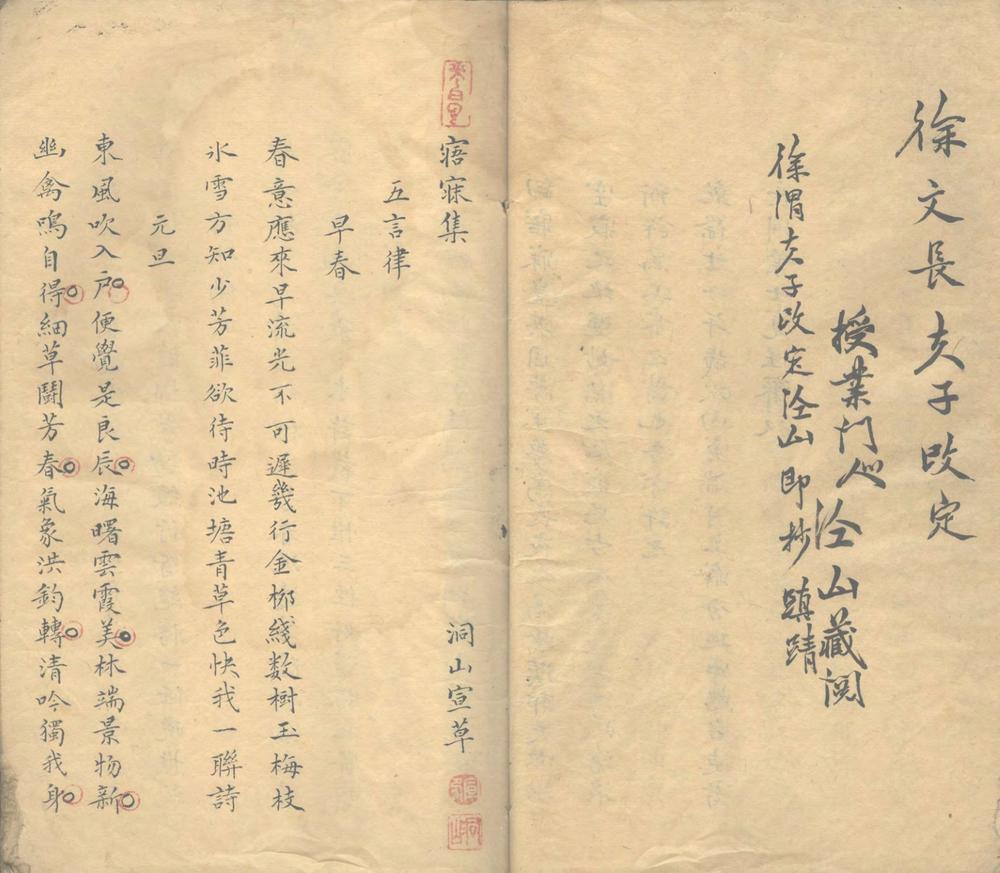 徐文長夫子改定
授業門人淦山藏閱
徐渭夫子改定淦山即抄
寤寐集
洞山宣草
五言律
早春
春意應來早流光不可遲幾行金栁綫数樹玉梅枝
氷雪方知少芳菲欲待時池塘青草色快我一聯詩
元旦
東風吹入户便覺是良辰海曙雲霞美林端景物新
幽禽鳴自得細草鬪芳春氣象洪鈞轉清吟獨我身